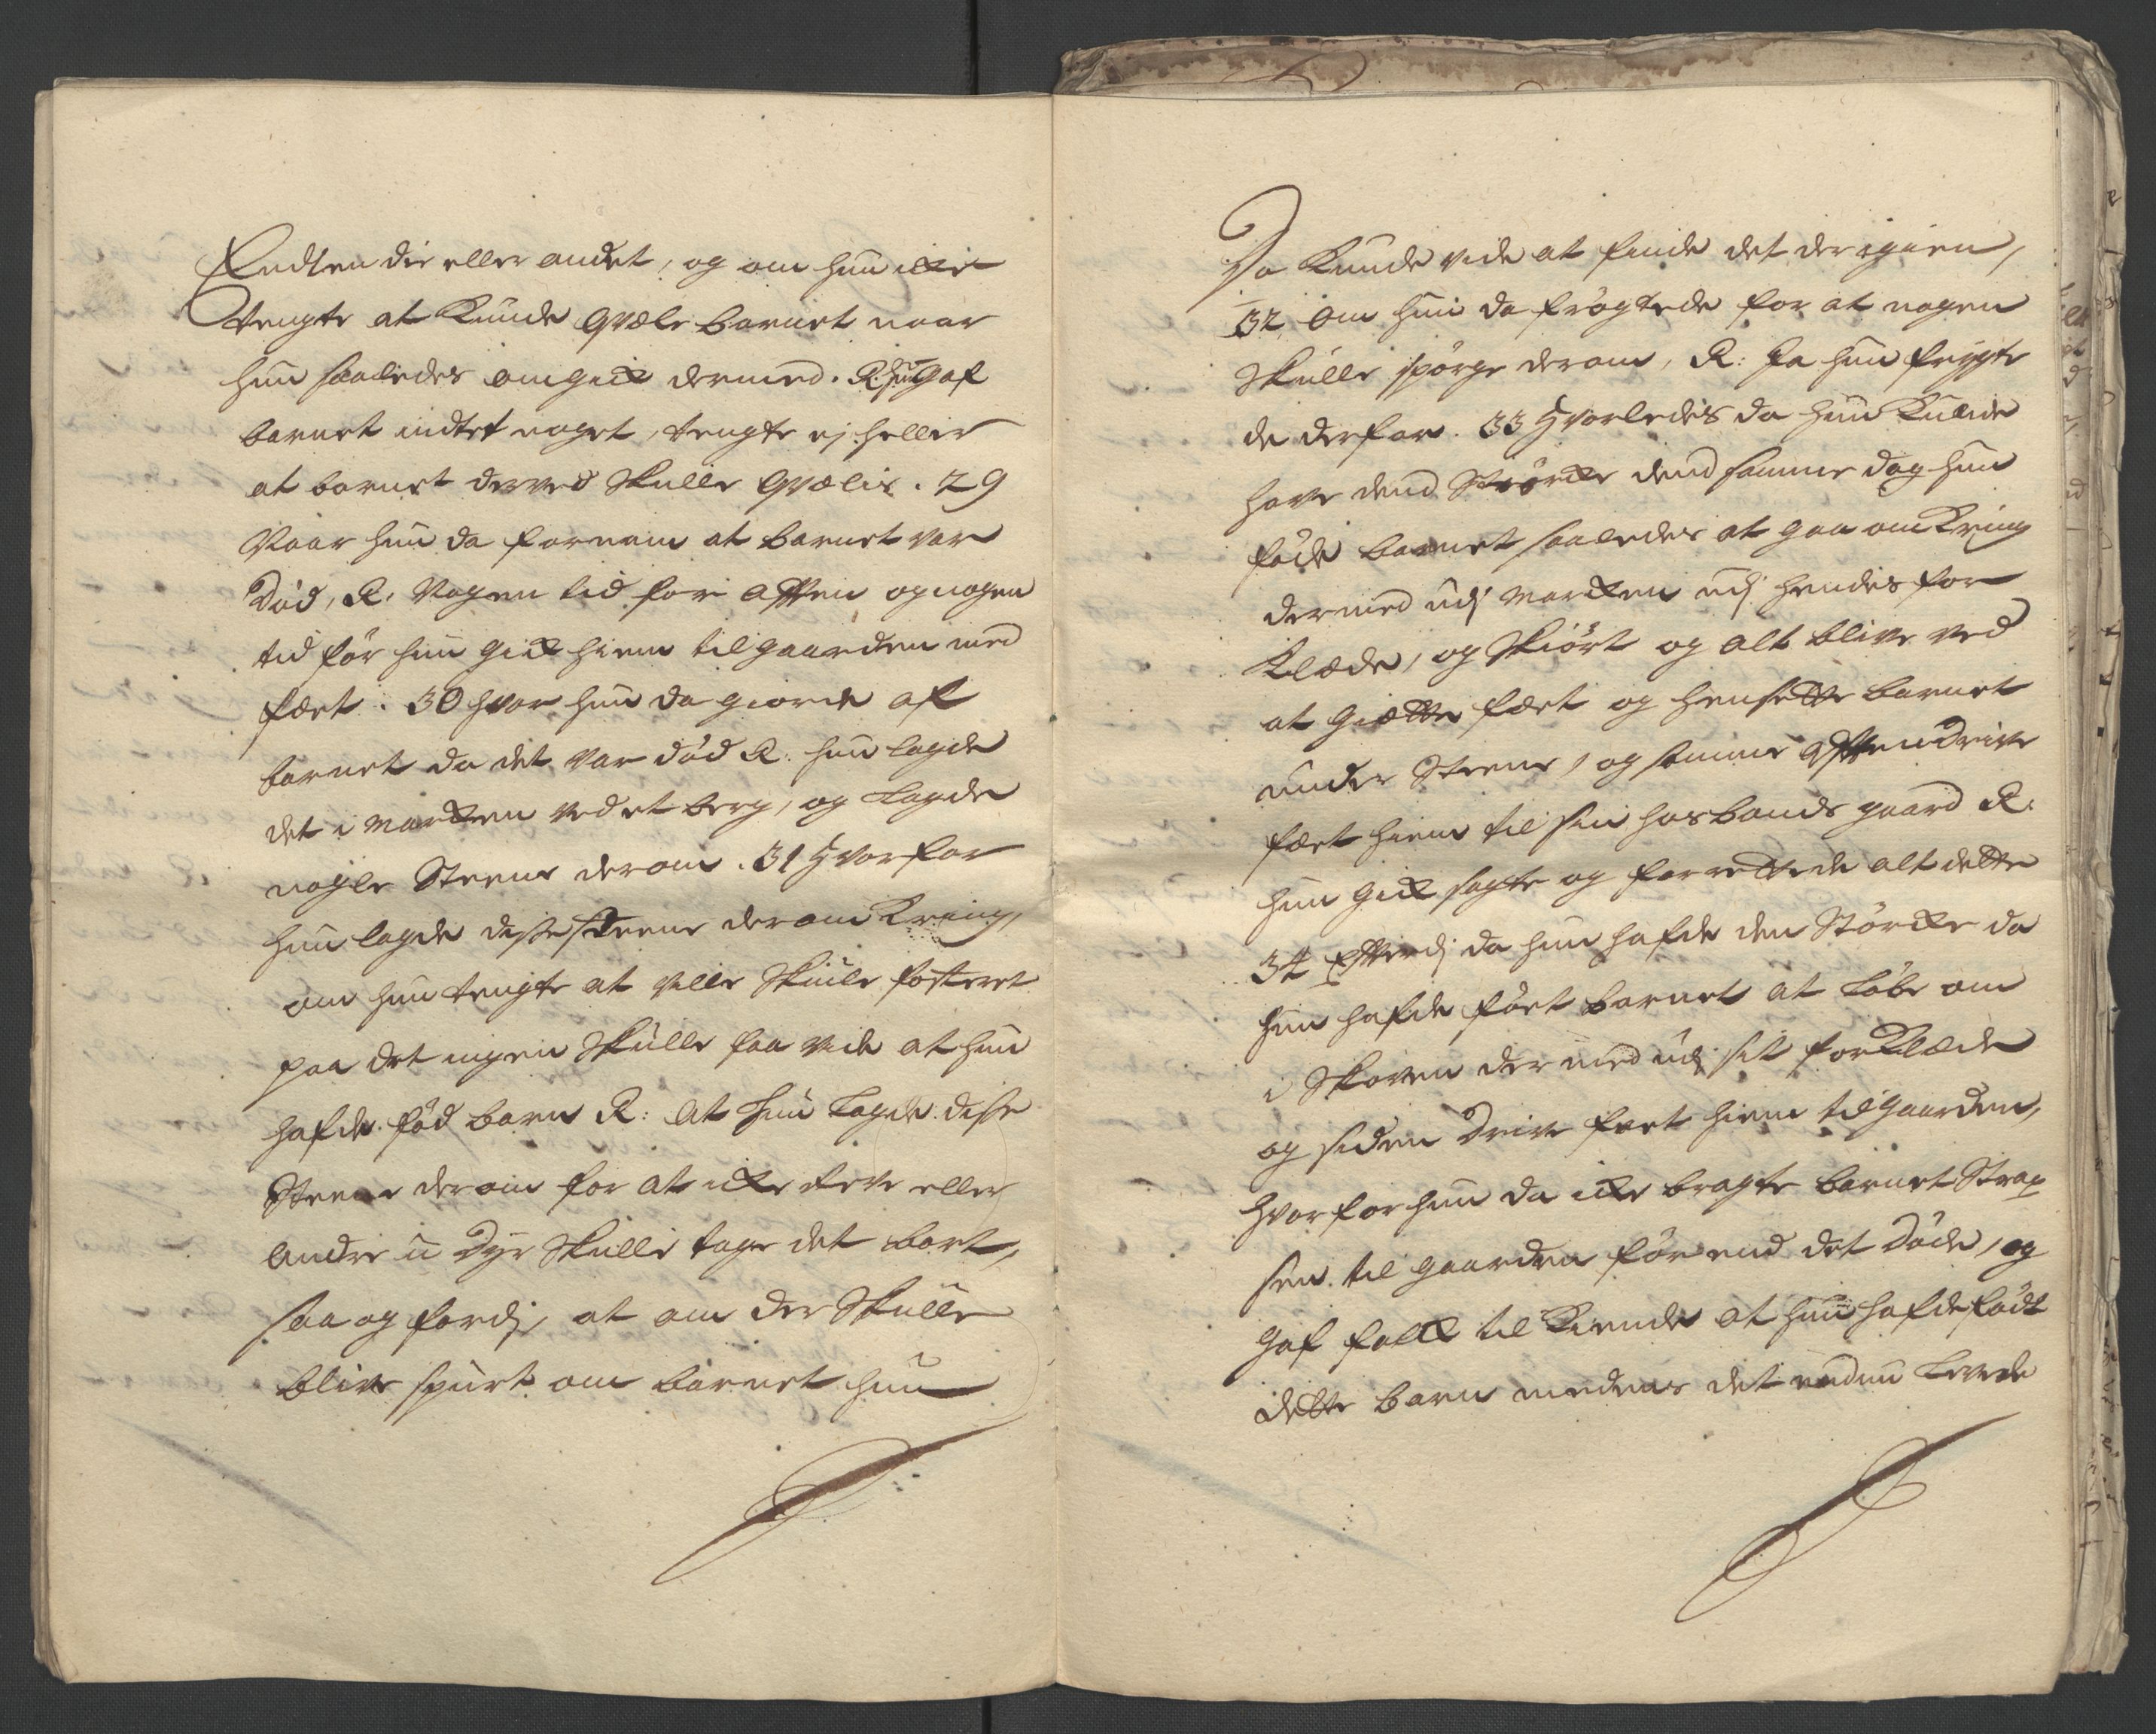 Endten die eller andet, og om hun icke
tengte at kunde qvæle barnet naar
hun saaledes omgick dermed. R: hun gaf
barnet indtet noget, tengte ej heller
at barnet derved skulle qvælis. 29
Naar hun da fornam at barnet var
død, R: Nogen tid for afften og nogen
tid før hun gick hiem til gaarden med
fæet. 30 hvor hun da giorde af
barnet da det var død R: hun lagde
det i marcken ved et berg, og lagde
nogle steene derom. 31 Hvorfor
hun lagde disse steene deromkring,
om hun tengte at ville skiule fosteret
paa det ingen skulle faa vide at hun
hafde fød barn R: at hun lagde disse
steene derom for at icke ræve eller
andre u dyr skulle tage det bort,
saa og fordj, at om der skulle
blive spurt om barnet hun
da kunde vide at finde det der igien,
32 Om hun da frögtede for at nogen
skulle spörge derom, R: Ja hun frygte
de derfor. 33 Hvorledes da hun kunde
have dend störcke dend samme dag hun
føde barnet saaledes at gaa omkring
dermed udj marcken udj hendes for
klæde, og skiört og alt blive ved
at giætte fæet og hensette barnet
under steene, og samme afften drive
fæet hiem til sin hosbonds gaard R:
hun gick sagte og forrettede alt dette
34 Efterdj da hun hafde den störcke da
hun hafde föet barnet at löbe om
i skoven der med udj sit forklæde
og siden drive fæet hiem til gaarden,
hvorfor hun da icke bragte barnet strax
hen til gaarden för end det döde, og
gaf folck til kiende at hun hafde födt
dette barn medens det endnu levede